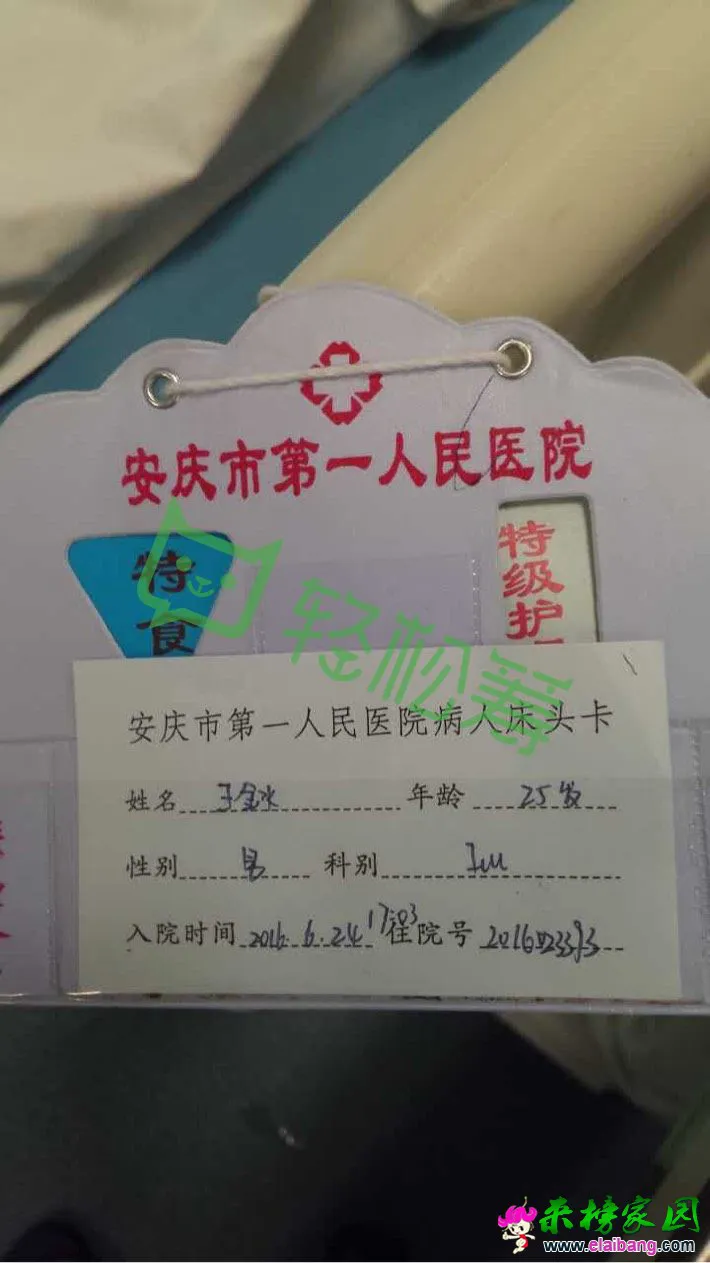 安庆市第一人民医院
特食
特级护
轻松筹
安庆市第一人民医院病人床头卡
姓名 王金水 年龄 25岁
性别 男 科别 ICU
入院时间 2016.6.24 17:03 住院号
来榜家园
www.elaibang.com